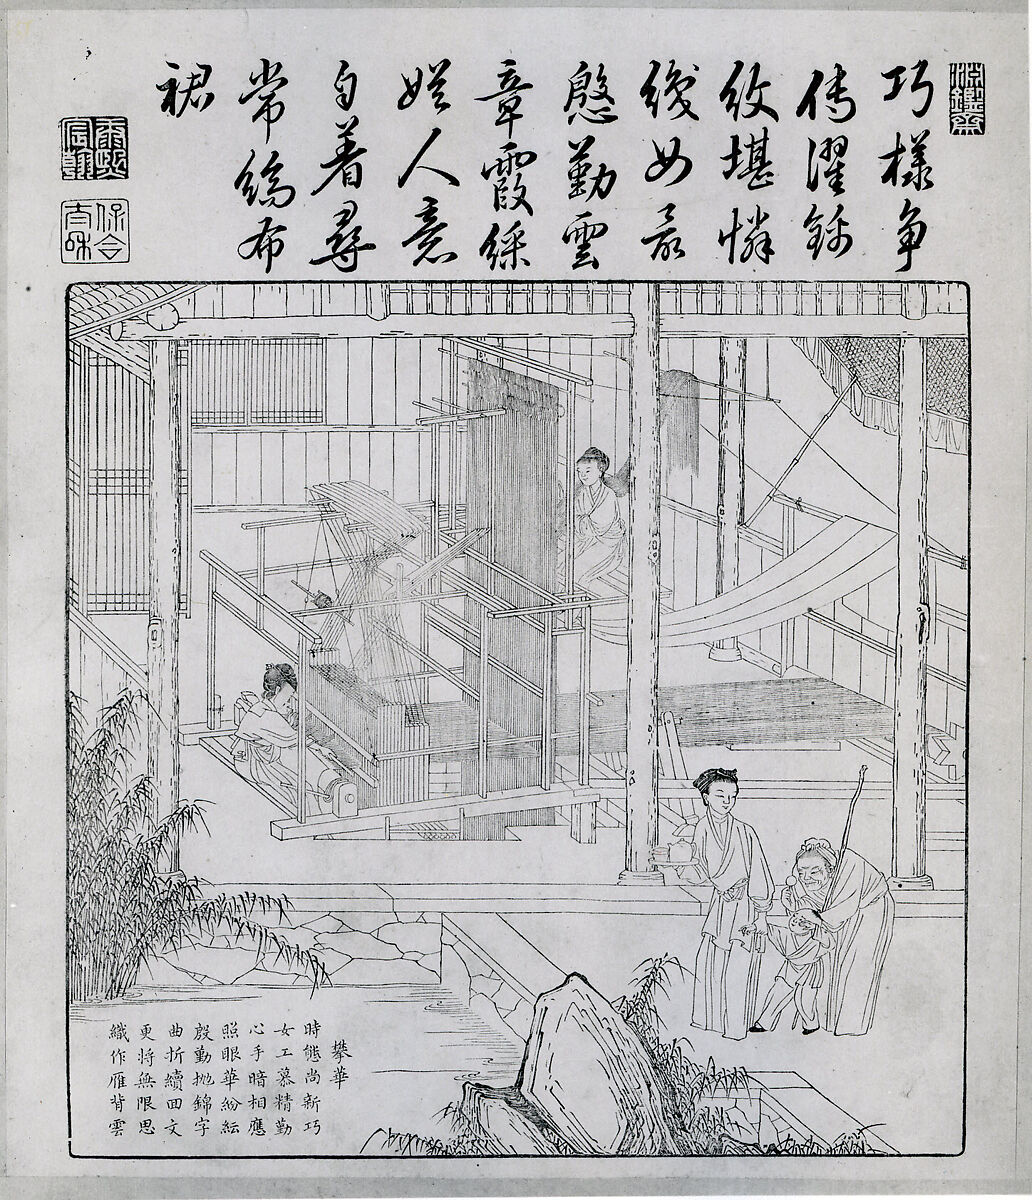 淵鑒齋
巧樣争
傳濯錦
紋堪憐
織女最
慇勤雲
章霞綵
娛人意
自着尋
常縞布
裙
康熙
宸翰
保合
太和
攀華
時態尚新巧
女工慕精勤
心手暗相應
照眼華紛紜
殷勤抛錦字
曲折續回文
更將無限思
織作雁背雲